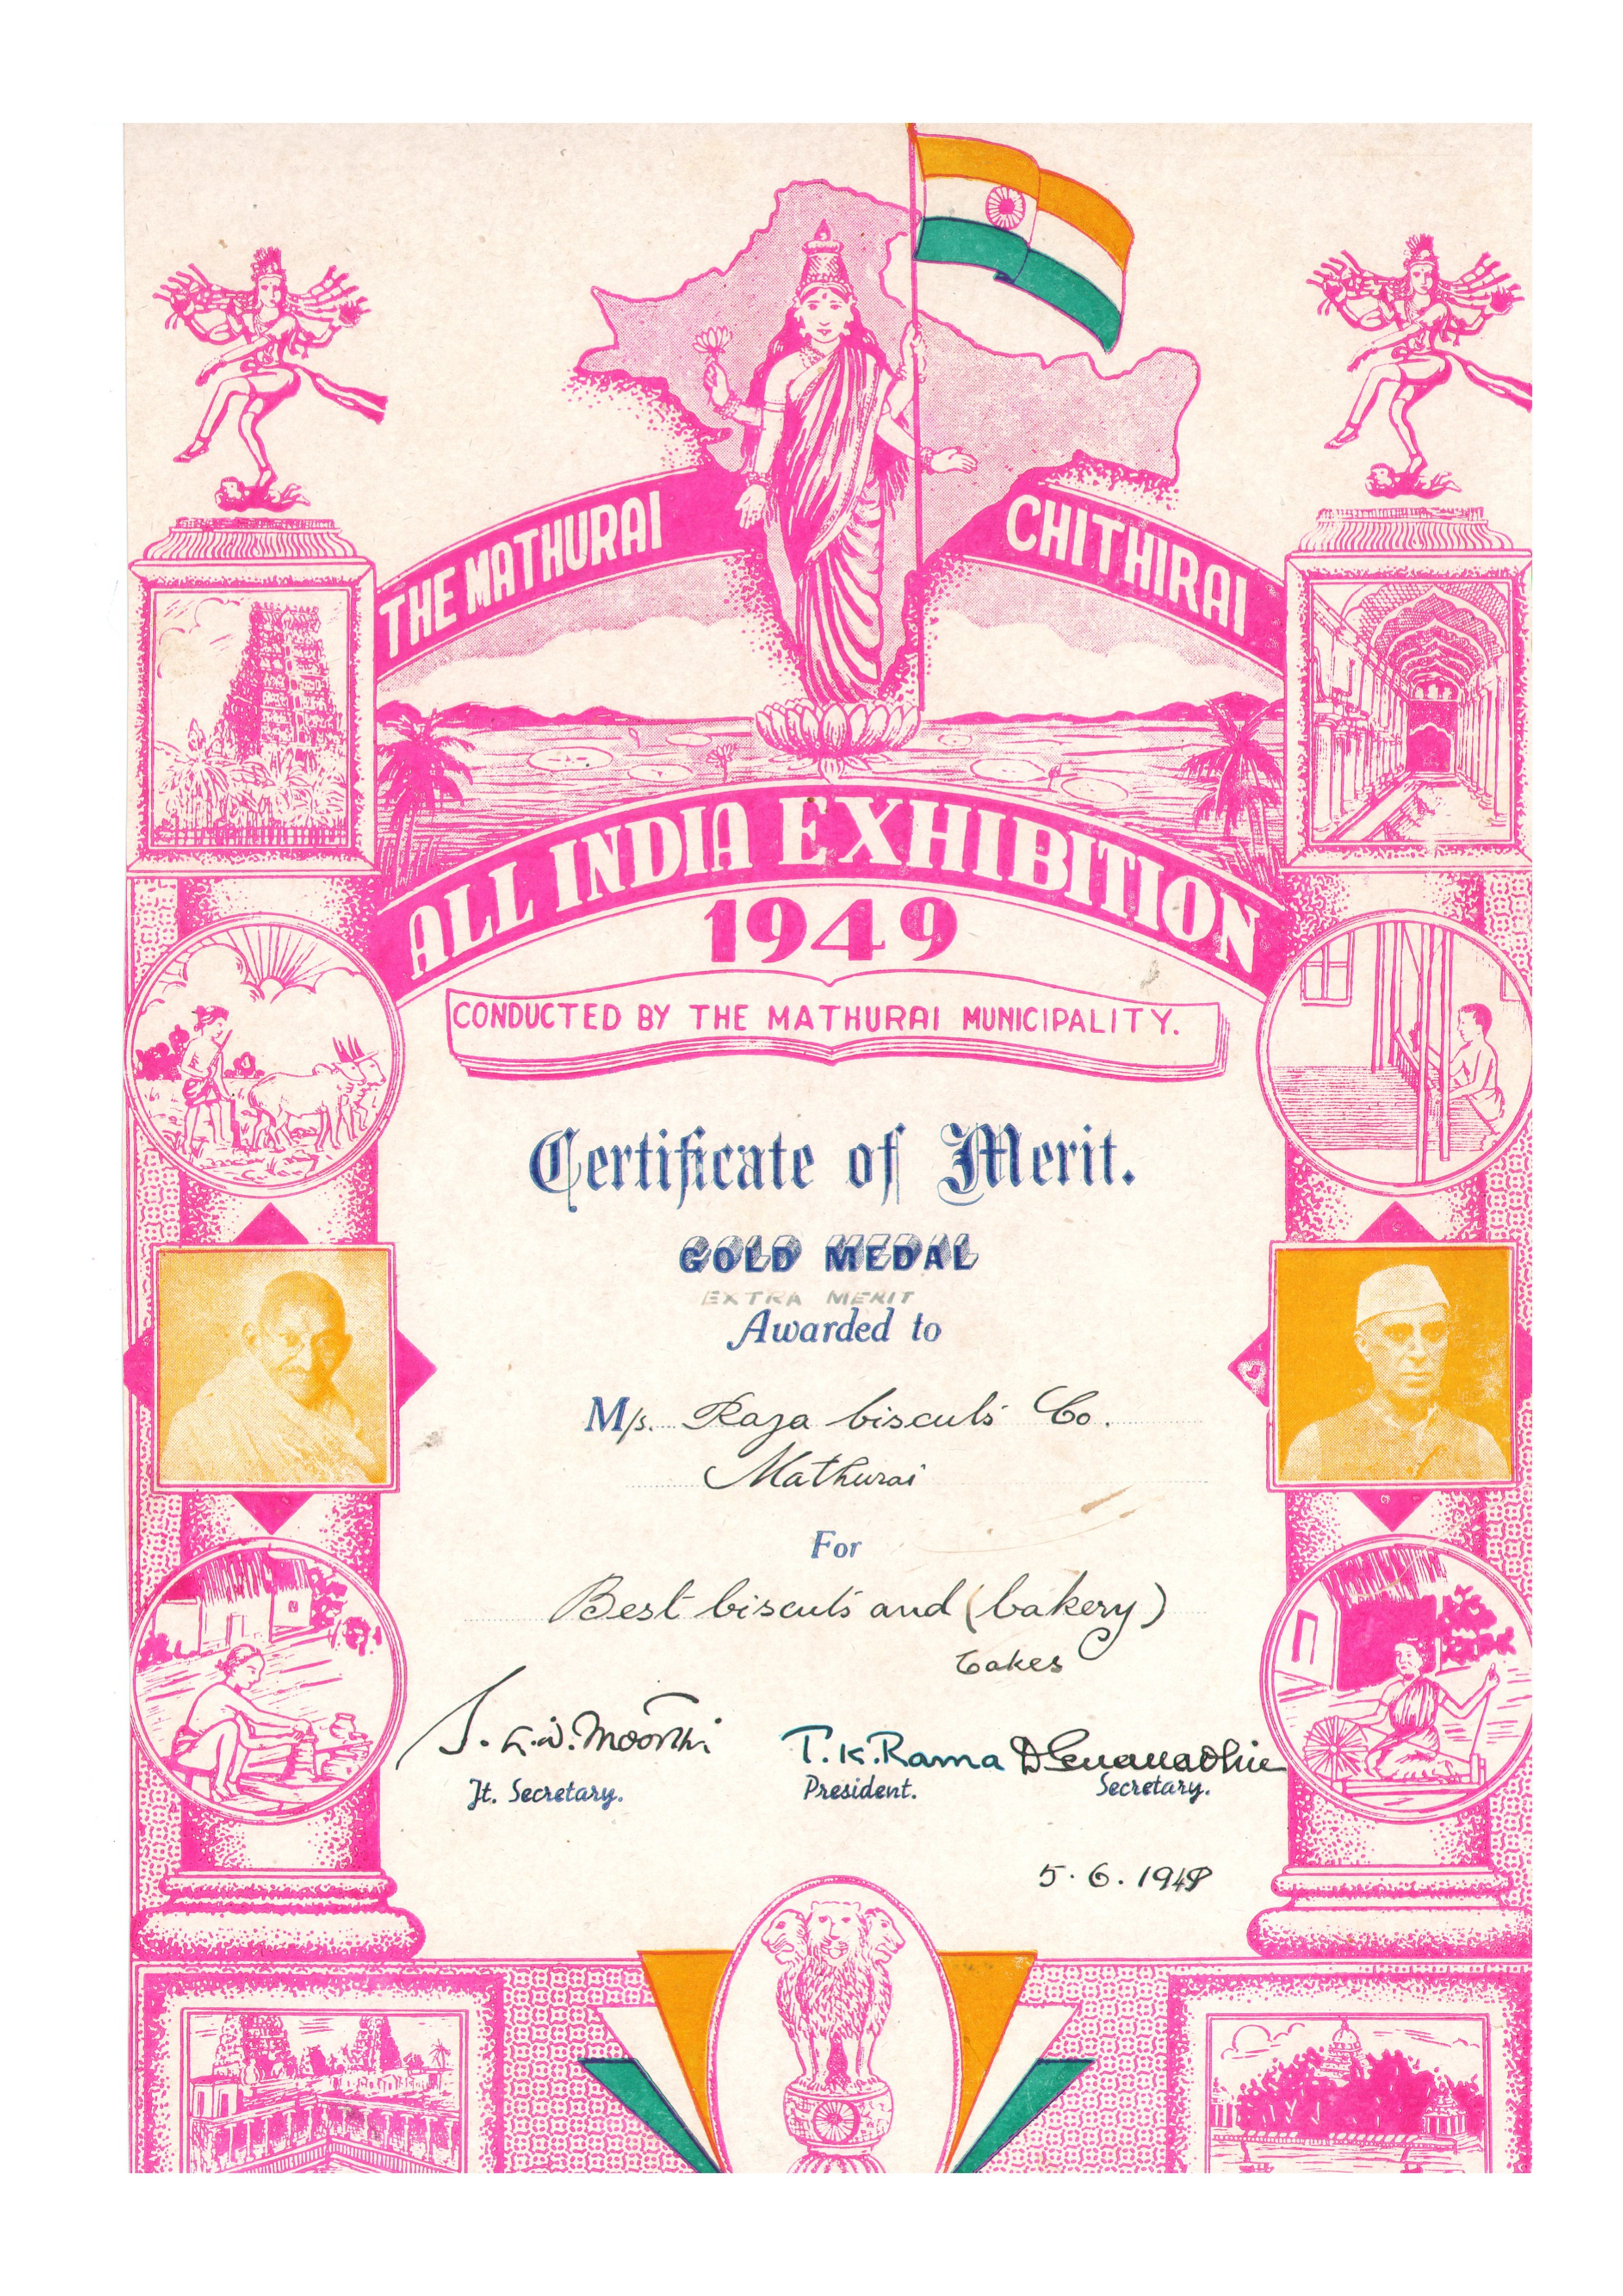 THE MATHURAI CHITHIRAI
ALL INDIA EXHIBITION
1949
CONDUCTED BY THE MATHURAI MUNICIPALITY.
Certificate of Merit.
GOLD MEDAL
EXTRA MERIT
Awarded to
M/s. Raja biscuts Co.
Mathurai
For
Best biscuts and (bakery)
Cakes
T.K.Rama
Jt. Secretary. President. Secretary.
5.6.1949